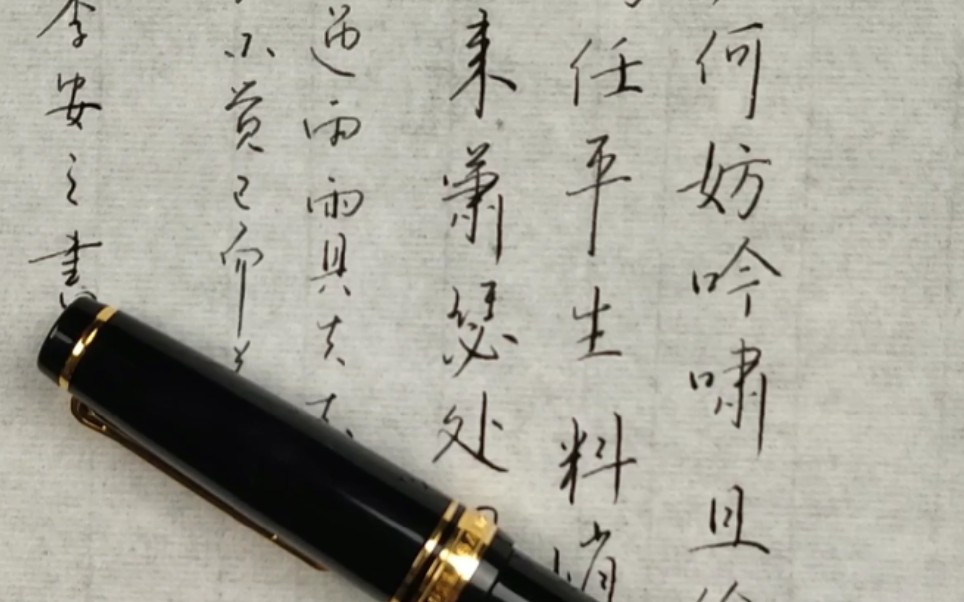 何妨吟啸且
任平生料峭
来萧瑟处
遇雨雨具先去
不觉已而
李安之书